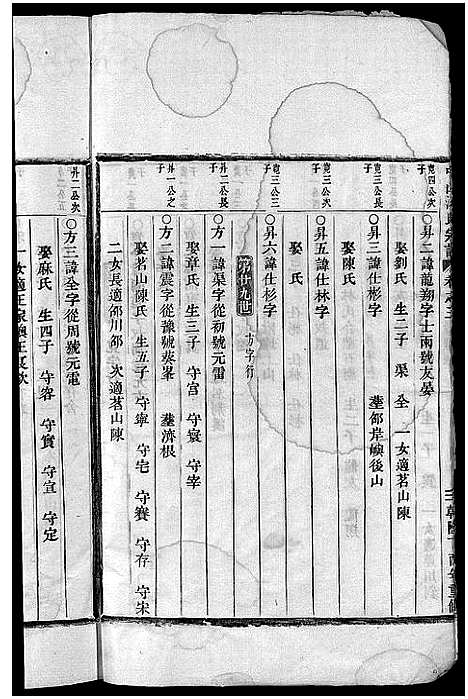 寬四公次子
○昇二諱龍翔字士兩號友晏
娶劉氏 生二子 渠 全 一女適茗山陳
寬三公長子
○昇三諱仕彬字 塟邵岸嶼後山
娶陳氏
寬三公次子
○昇五諱仕林字
娶 氏
寬三公三子
○昇六諱仕杉字
第廿九世 方字行
昇二公長子
○方一諱渠字從礽號元雷
娶章氏 生三子 守宫 守寰 守宰
昇一公之子
○方二諱震字從豫號葵峯 塟濟根
娶茗山陳氏 生五子 守寧 守宅 守賽 守存 守宋
二女長適邵川邵 次適茗山陳
昇二公次子
○方三諱全字從周號元電
娶麻氏 生四子 守容 守實 守宣 守定
一女適王